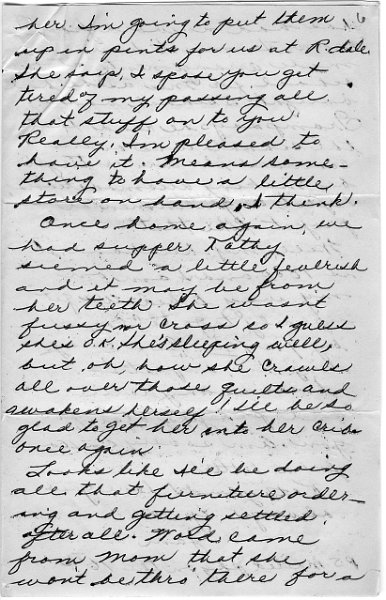 her. I'm going to put them
up in pints for us at R. dale.
She says, I spose you get
tired of my passing all
that stuff on to you.
Really, I'm pleased to
have it. Means some-
thing to have a little
store on hand, I think.
Once home again, we
had supper. Tathy
seemed a little feverish
and it may be from
her teeth. She wasn't
fussy nor cross so I guess
she's O.K. She's sleeping well,
but, oh, how she crawls
all over those quilts and
awakens herself! I'll be so
glad to get her into her crib
once again.
Looks like I'll be doing
all that furniture order-
ing and getting settled
after all. Word came
from Mom that she
won't be thro' there for a